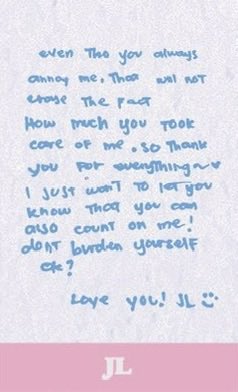 even tho you always
annoy me. That will not
erase The Fact
How much you Took
care of me. so Thank
you for everything~♡
I just want To let you
know That you can
also count on me!
dont burden yourself
ok?
Love you! JL :)
JL